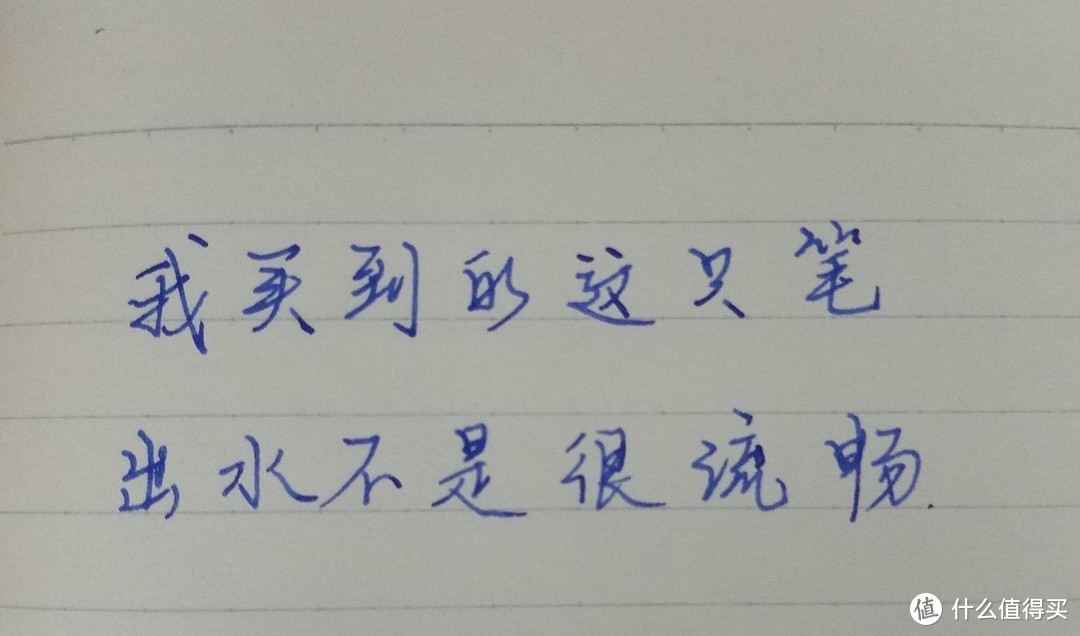 我买到的这只笔
出水不是很流畅.
值 什么值得买